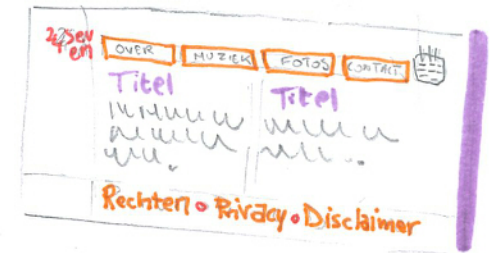 Sev
en
OVER MUZIEK FOTOS CONTACT
Titel Titel
Rechten • Privacy • Disclaimer